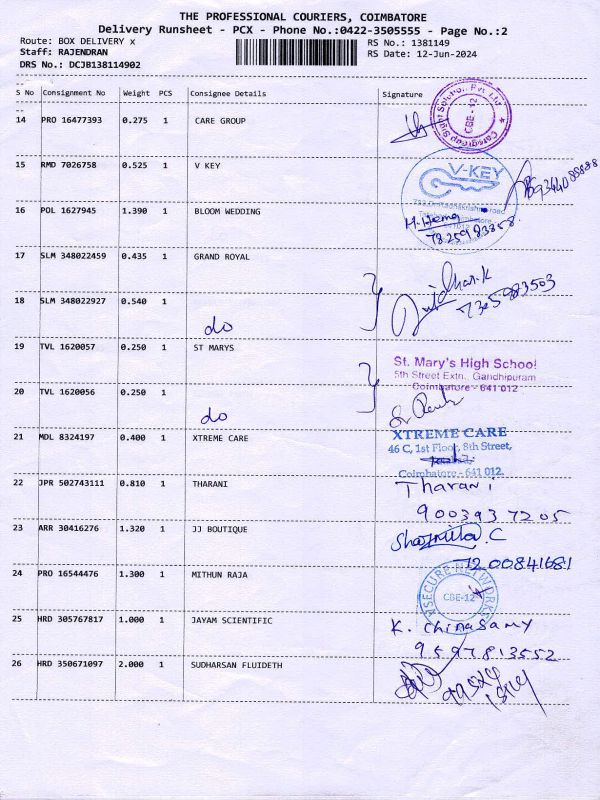 THE PROFESSIONAL COURIERS, COIMBATORE
Delivery Runsheet - PCX - Phone No.:0422-3505555 - Page No.:2
Route: BOX DELIVERY x
RS No.: 1381149
Staff: RAJENDRAN
RS Date: 12-Jun-2024
DRS No.: DCJB138114902
S No Consignment No Weight PCS Consignee Details Signature
14 PRO 16477393 0.275 1 CARE GROUP
Caregroup Sight Solution Pvt. Ltd.
CBE-12
15 RMD 7026758 0.525 1 V KEY
V-KEY
16 POL 1627945 1.390 1 BLOOM WEDDING
H.Hema
7825983858
17 SLM 348022459 0.435 1 GRAND ROYAL
18 SLM 348022927 0.540 1
do
7305983503
19 TVL 1620057 0.250 1 ST MARYS
St. Mary's High School
5th Street Extn., Gandhipuram
Coimbatore - 641 012
20 TVL 1620056 0.250 1
do
21 MDL 8324197 0.400 1 XTREME CARE
XTREME CARE
46 C, 1st Floor, 8th Street,
Coimbatore - 641 012.
22 JPR 502743111 0.810 1 THARANI
Tharani
9003937205
23 ARR 30416276 1.320 1 JJ BOUTIQUE
Sharmila C
7200841681
24 PRO 16544476 1.300 1 MITHUN RAJA
SECURE NETWORKS
CBE-12
25 HRD 305767817 1.000 1 JAYAM SCIENTIFIC
K. Chinasamy
9597813552
26 HRD 350671097 2.000 1 SUDHARSAN FLUIDETH